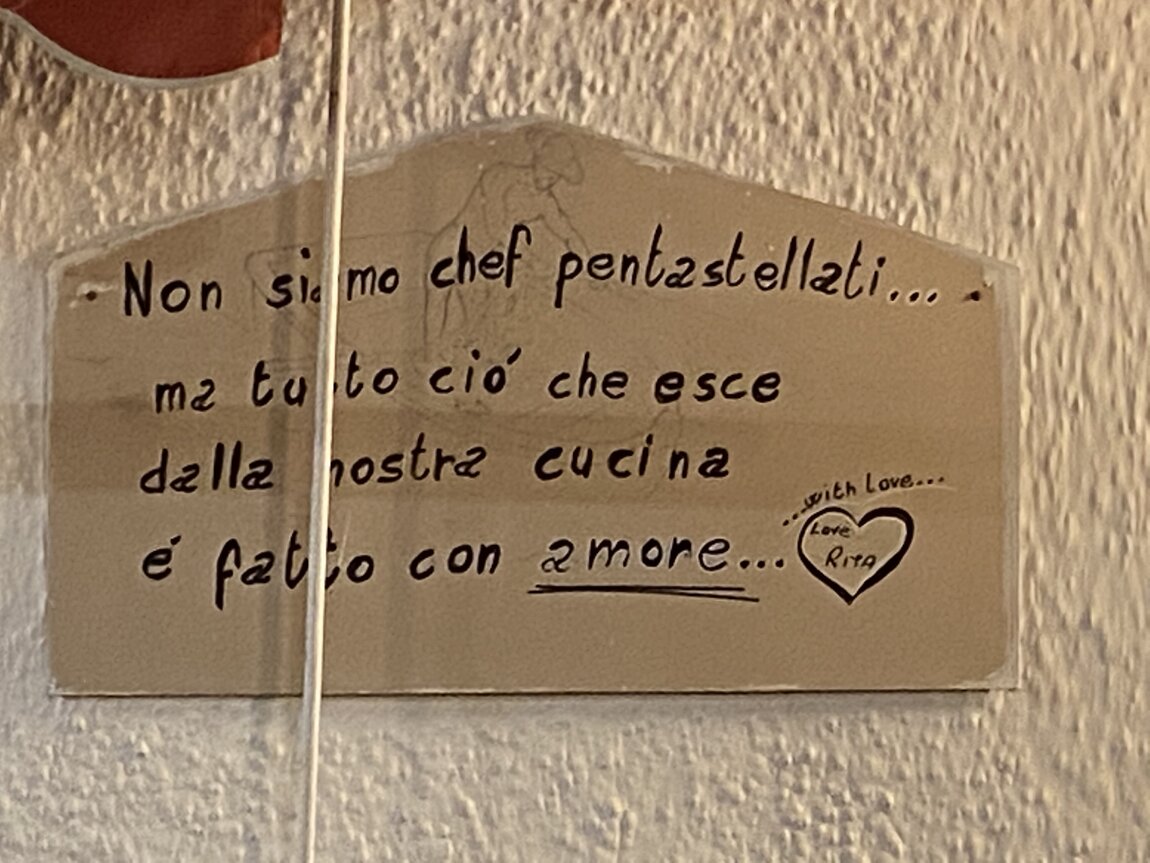 Non siamo chef pentastellati...
ma tutto ció che esce
dalla nostra cucina
é fatto con amore...
...with Love...
Love
RITA